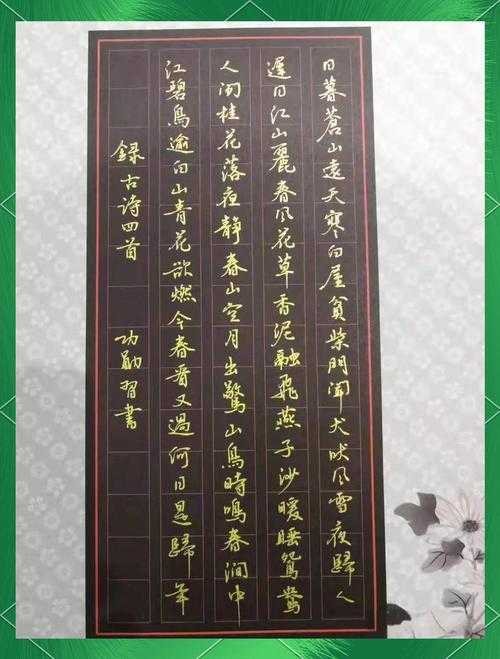 日暮蒼山遠天寒白屋貧柴門聞犬吠風雪夜歸人
遲日江山麗春風花草香泥融飛燕子沙暖睡鴛鴦
人閒桂花落夜靜春山空月出驚山鳥時鳴春澗中
江碧鳥逾白山青花欲燃今春看又過何日是歸年
錄古诗四首 功勛習書